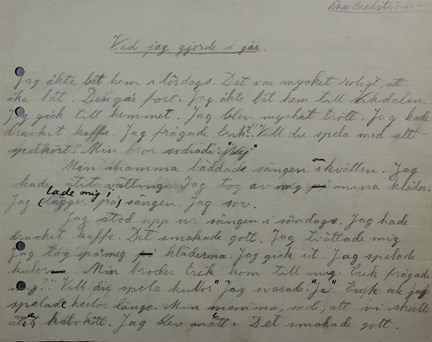 Vad jag gjorde i går.
Jag åkte båt hem i lördags. Det var mycket roligt, att
åka båt. Den går fort. Jag åkte båt hem till Vikdalen.
Jag gick till hemmet. Jag blev mycket trött. Jag hade
druckit kaffe. Jag frågade Erik: "Vill du spela med ett
spelkort? Min bror svarade: "Nej"
Min mamma bäddade sängen om kvällen. Jag
hade tvättning Jag tog av mig mina kläder.
Jag (lägger på) lade mig i sängen. Jag sov.
Jag stod upp ur sängen i söndags. Jag hade
drucket kaffe. Det smakade gott. Jag tvättade mig
Jag tog på meg kläderna. Jag gick ut. Jag spelade
kulor. Min broder Erik kom till mig. Erik frågade
mig: "Vill du spela kulor" Jag svarade: "Ja" Erik och jag
spelade kulor länge. Min mamma sad, att vi skull
äta kalvkött. Jag blev mätt. Det smakade gott.